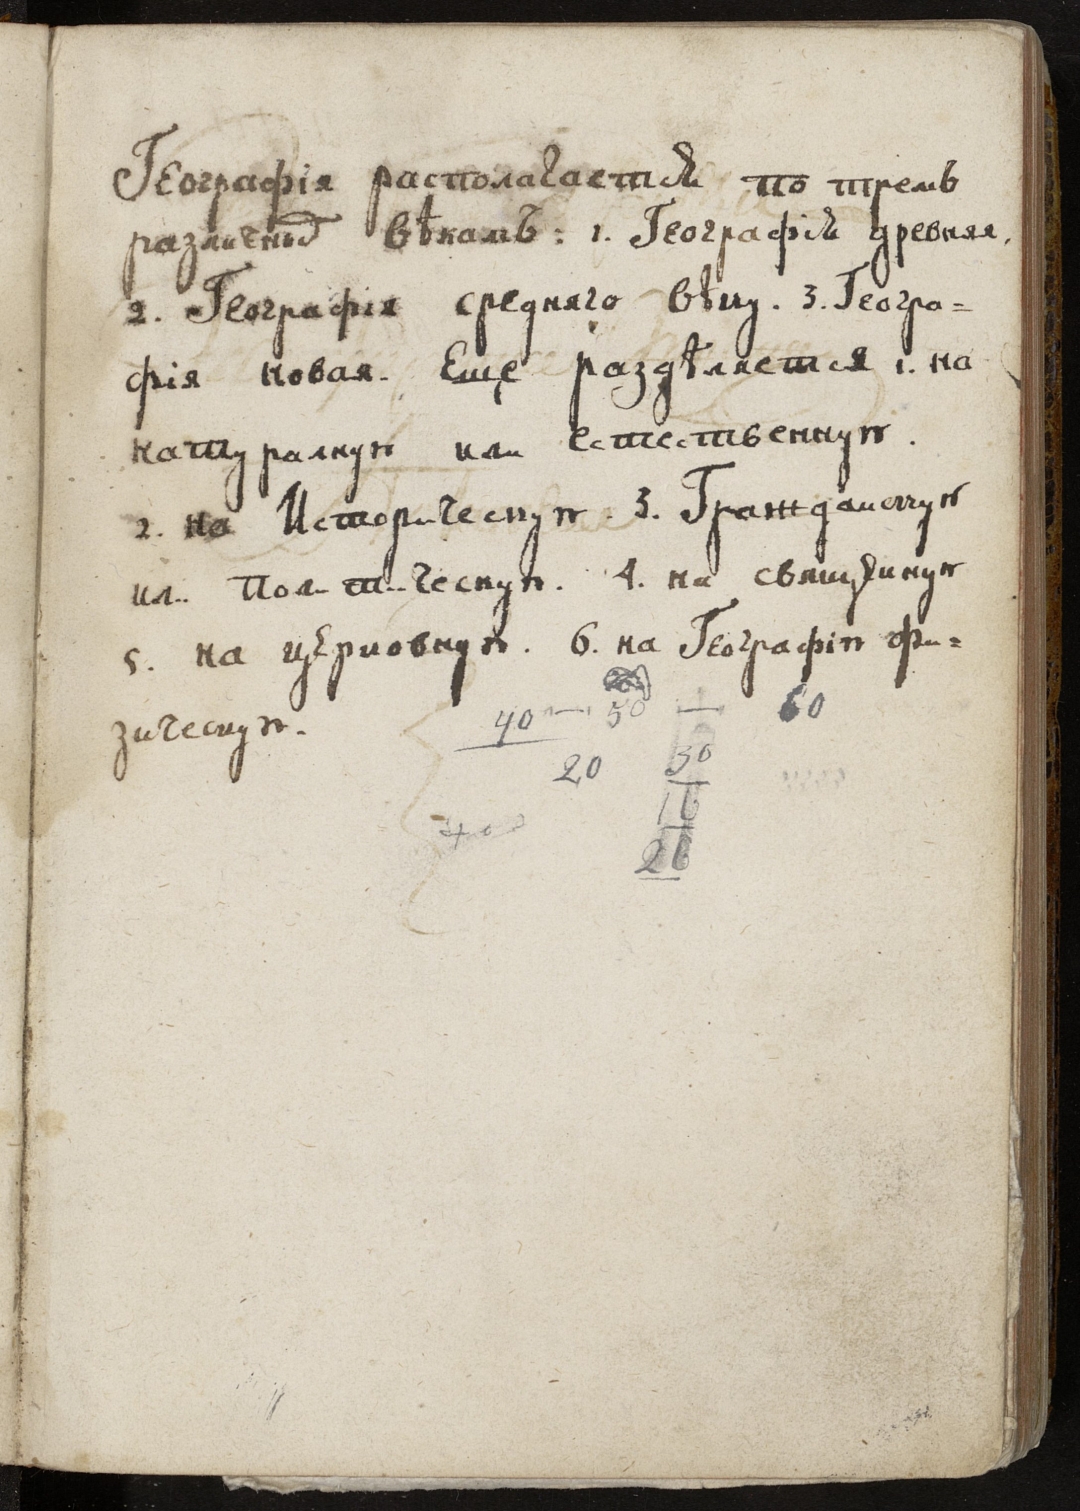 Географія располагается по тремъ
различнымъ вѣкамъ: 1. Географія древняя.
2. Географія средняго вѣку. 3. Геогра=
фія новая. Еще раздѣляется 1. на
натуралную или естественную.
2. на Историческую. 3. Гражданскую
или Политическую. 4. на священную
5. на церковную. 6. на Географію фи=
зическую.
40 — 50 — 60
20 30
16
26